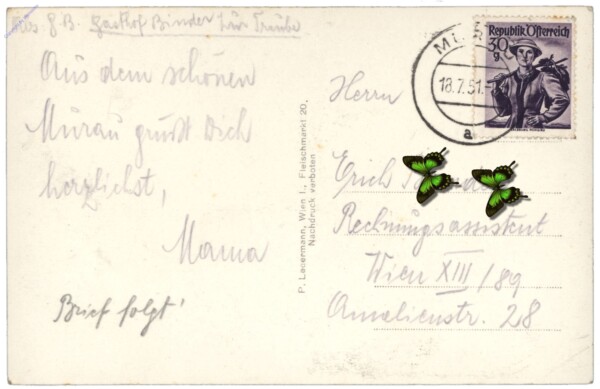 Gasthof Binder zur Traube
Aus dem schönen
Murau grüßt Dich
herzlichst,
Mama
Brief folgt!
P. Ledermann, Wien I., Fleischmarkt 20.
Nachdruck verboten
Republik Österreich
30
g
18.7.51.
a
Herrn
Erich
Rechnungsassistent
Wien XIII/89
Amalienstr. 28